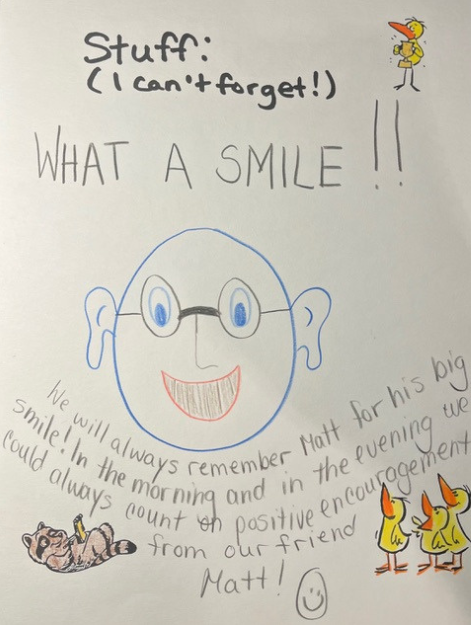 Stuff:
(I can't forget!)
WHAT A SMILE!!
We will always remember Matt for his big
smile! In the morning and in the evening we
could always count on positive encouragement
from our friend
Matt!